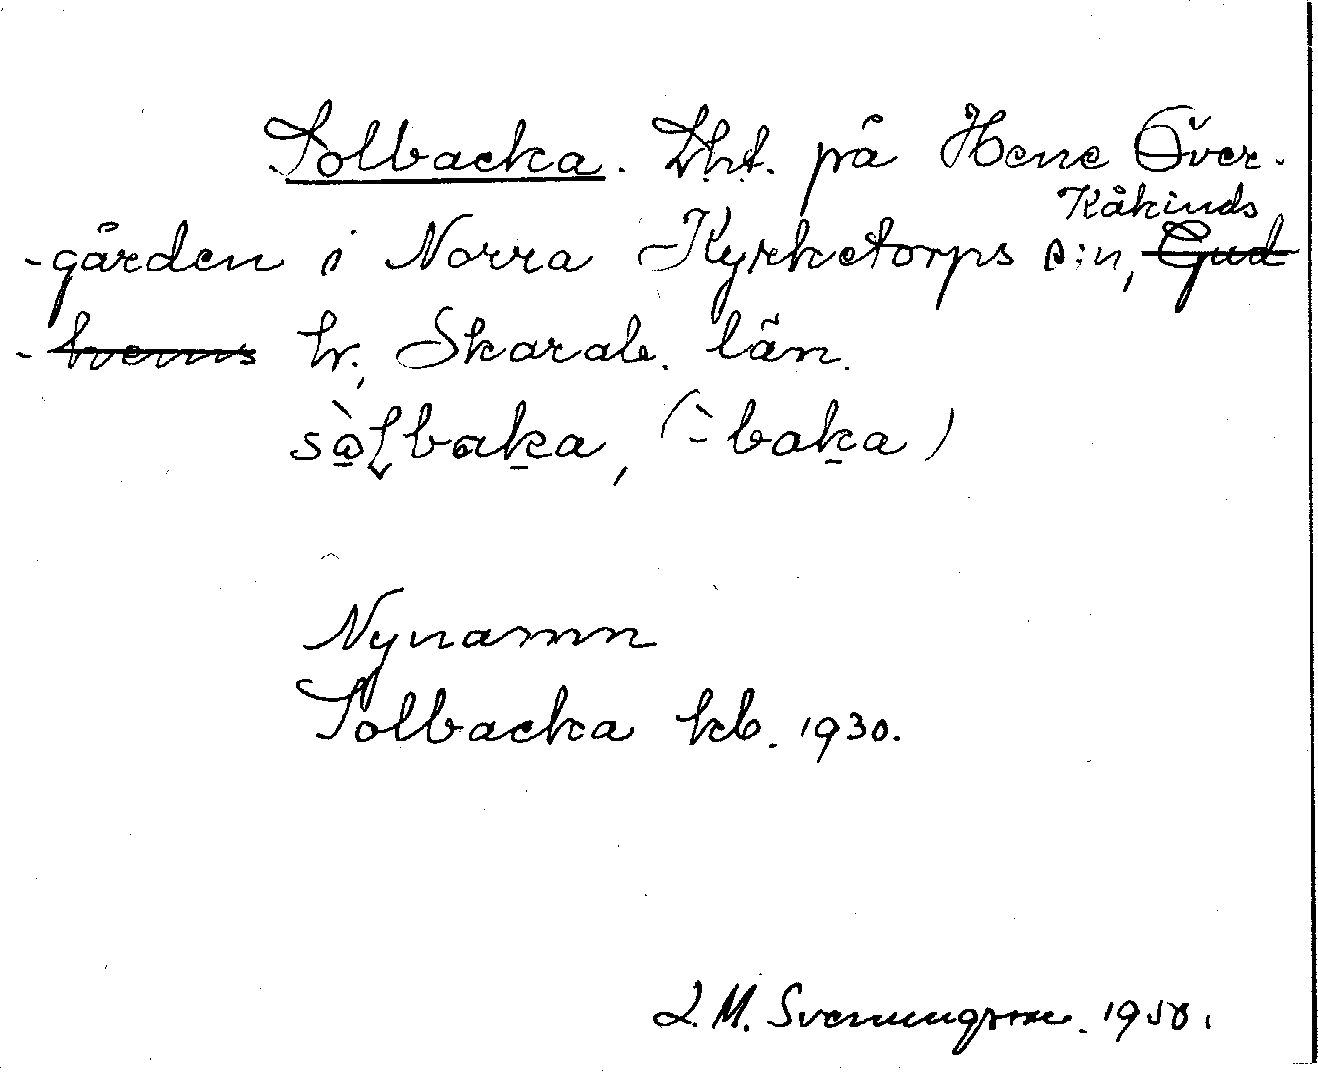 Solbacka. Lht. på Hene Över-
Kåkinds
-gården i Norra Kyrketorps s:n, Gud
-hems hr, Skarab. län.
sàlbaka, (`-baka)
Nynamn
Solbacka kb. 1930.
L. M. Svenungsson. 1950.